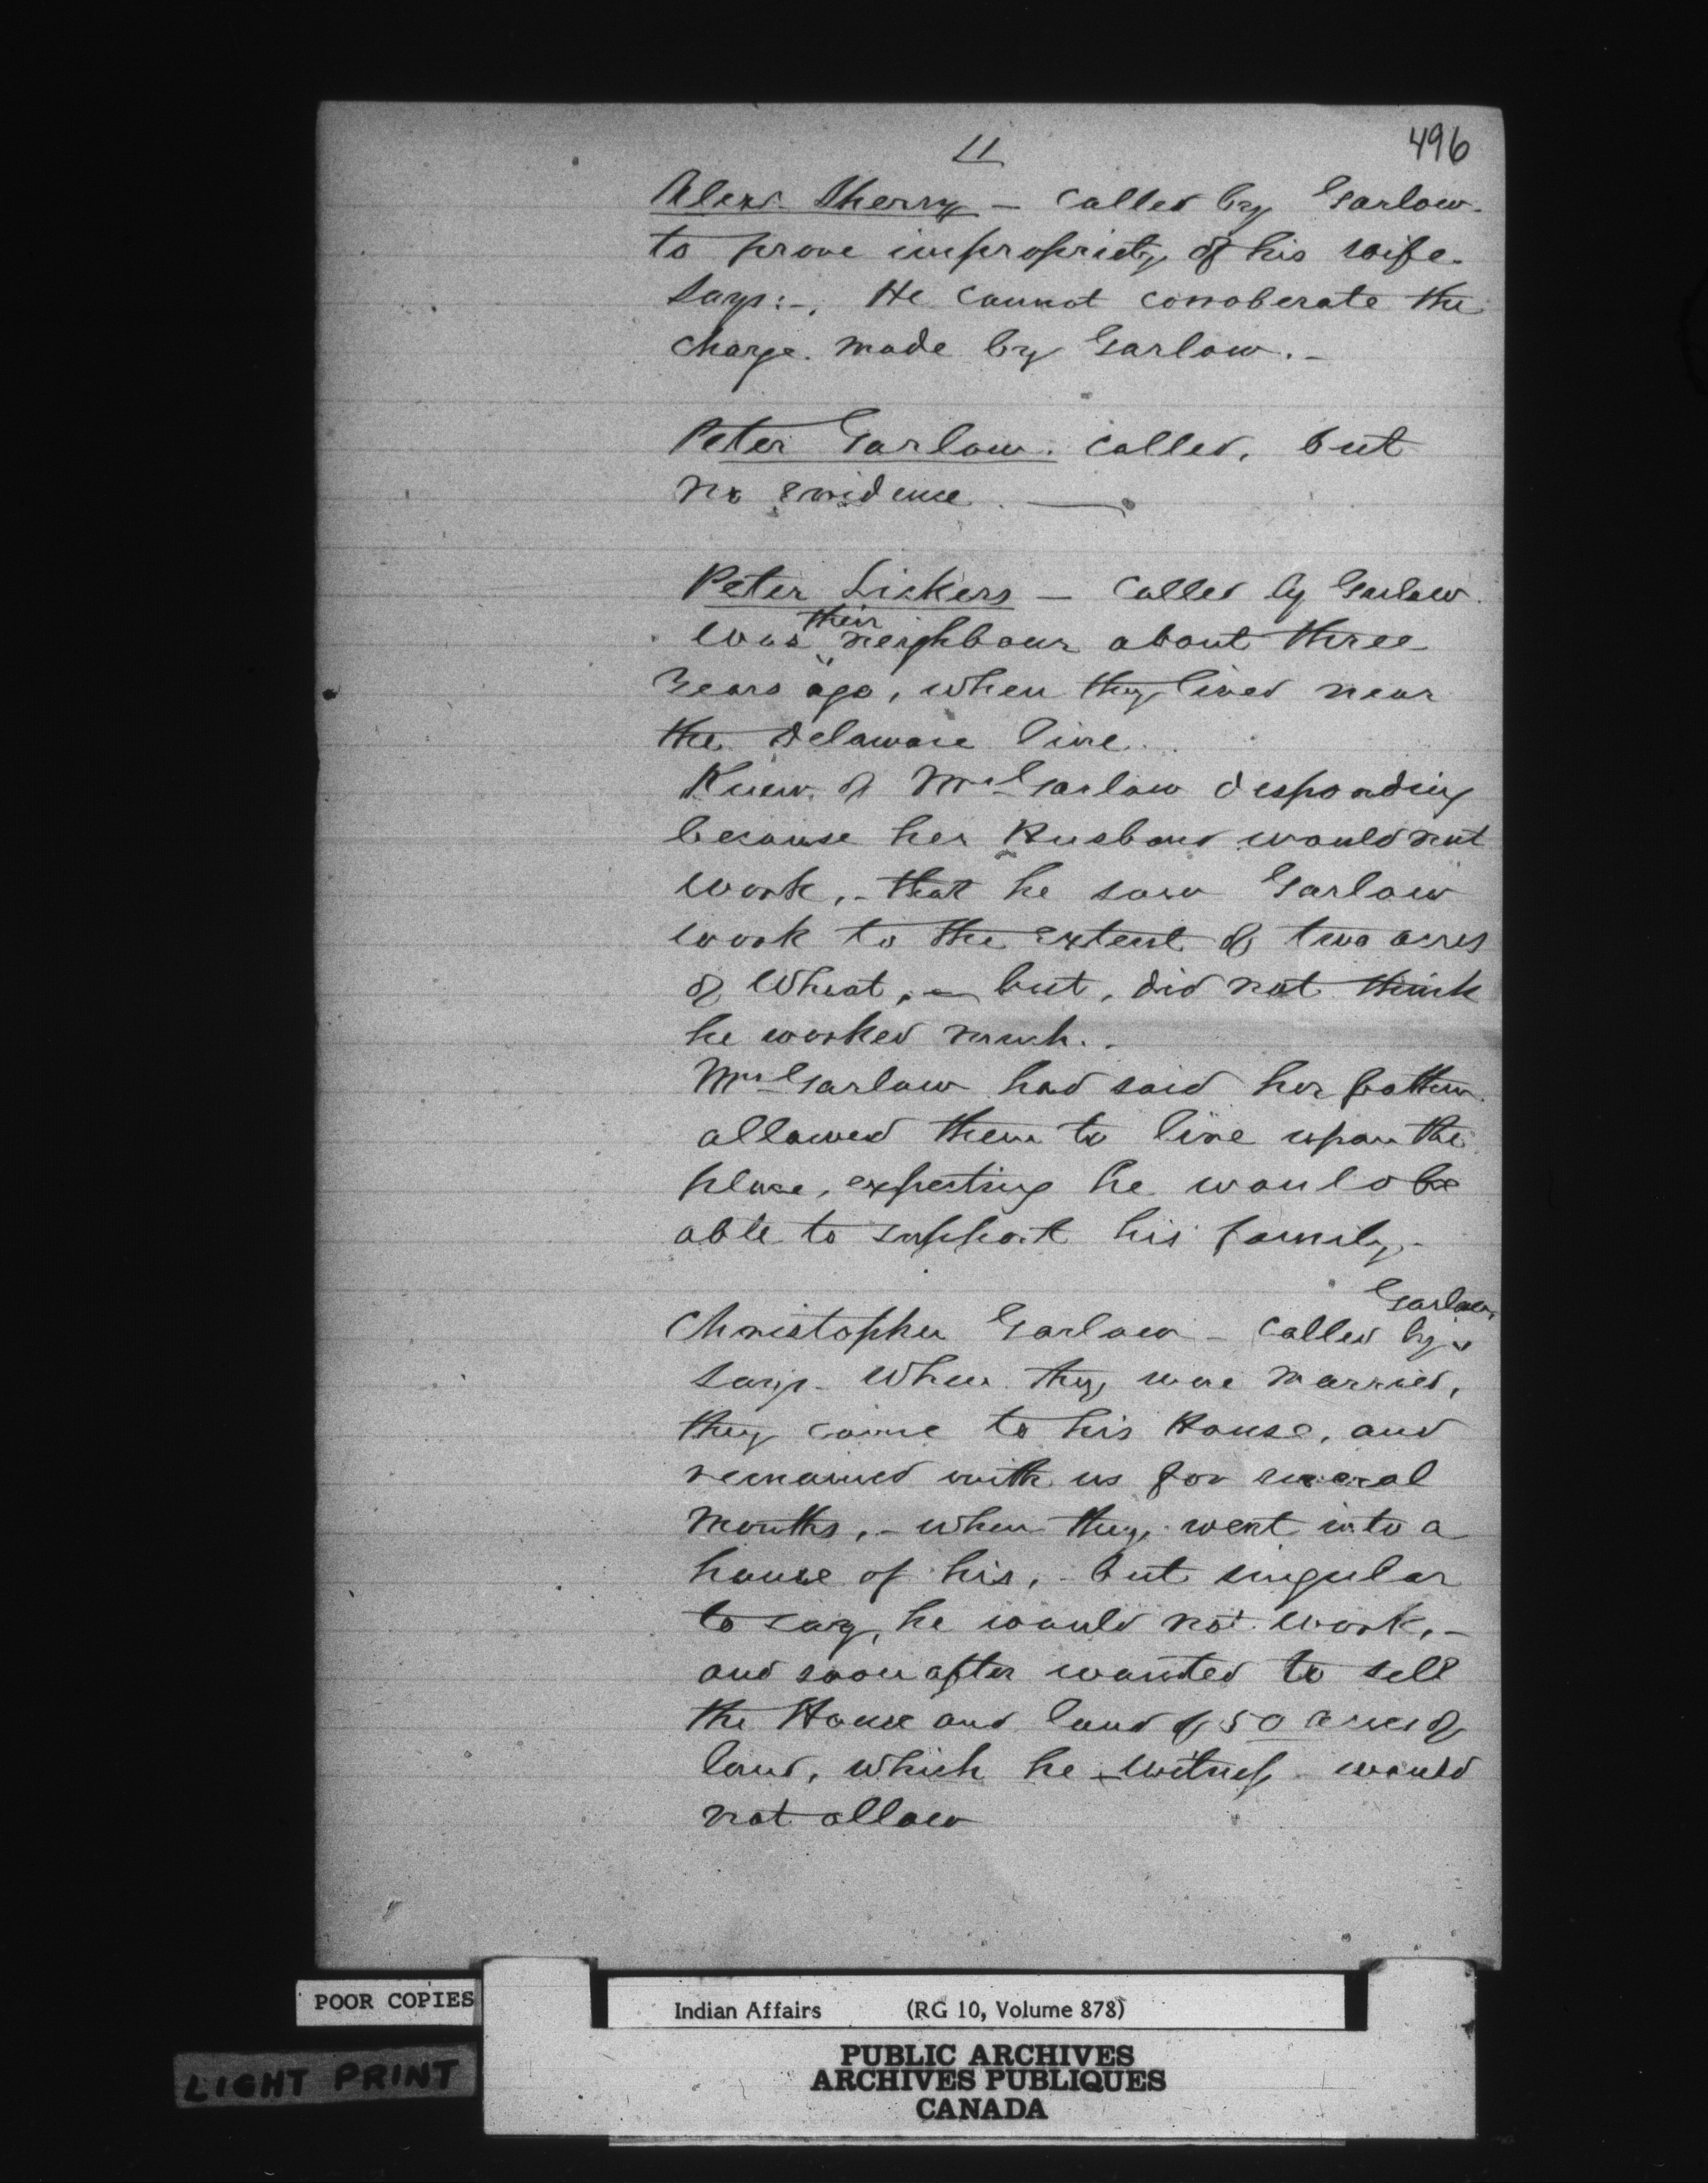 11
496
Alexr Sherry — called by Garlow.
to prove impropriety of his wife.
Says:-. He cannot corroberate the
charge. made by Garlow. -
Peter Garlow. called, but
no evidence. —
Peter Lickers — Called by Garlow.
their
was neighbour about three
years ago, when they lived near
the Delaware line.
Knew of Mrs Garlow desponding
because her Husband would not
work, - that he saw Garlow
work to the extent of two acres
of Wheat, - but, did not think
he worked much.
Mrs Garlow had said her father
allowed them to live upon the
place, expecting he would be
able to support his family.
Garlow,
Christopher Garlow - called by
says - When they were married,
they came to his House, and
remained with us for several
months, - when they, went into a
house of his, - but singular
to say, he would not work, -
and soon after wanted to sell
the House and land of 50 acres of
land, which he - witness - would
not allow
POOR COPIES
LIGHT PRINT
Indian Affairs (RG 10, Volume 878)
PUBLIC ARCHIVES
ARCHIVES PUBLIQUES
CANADA